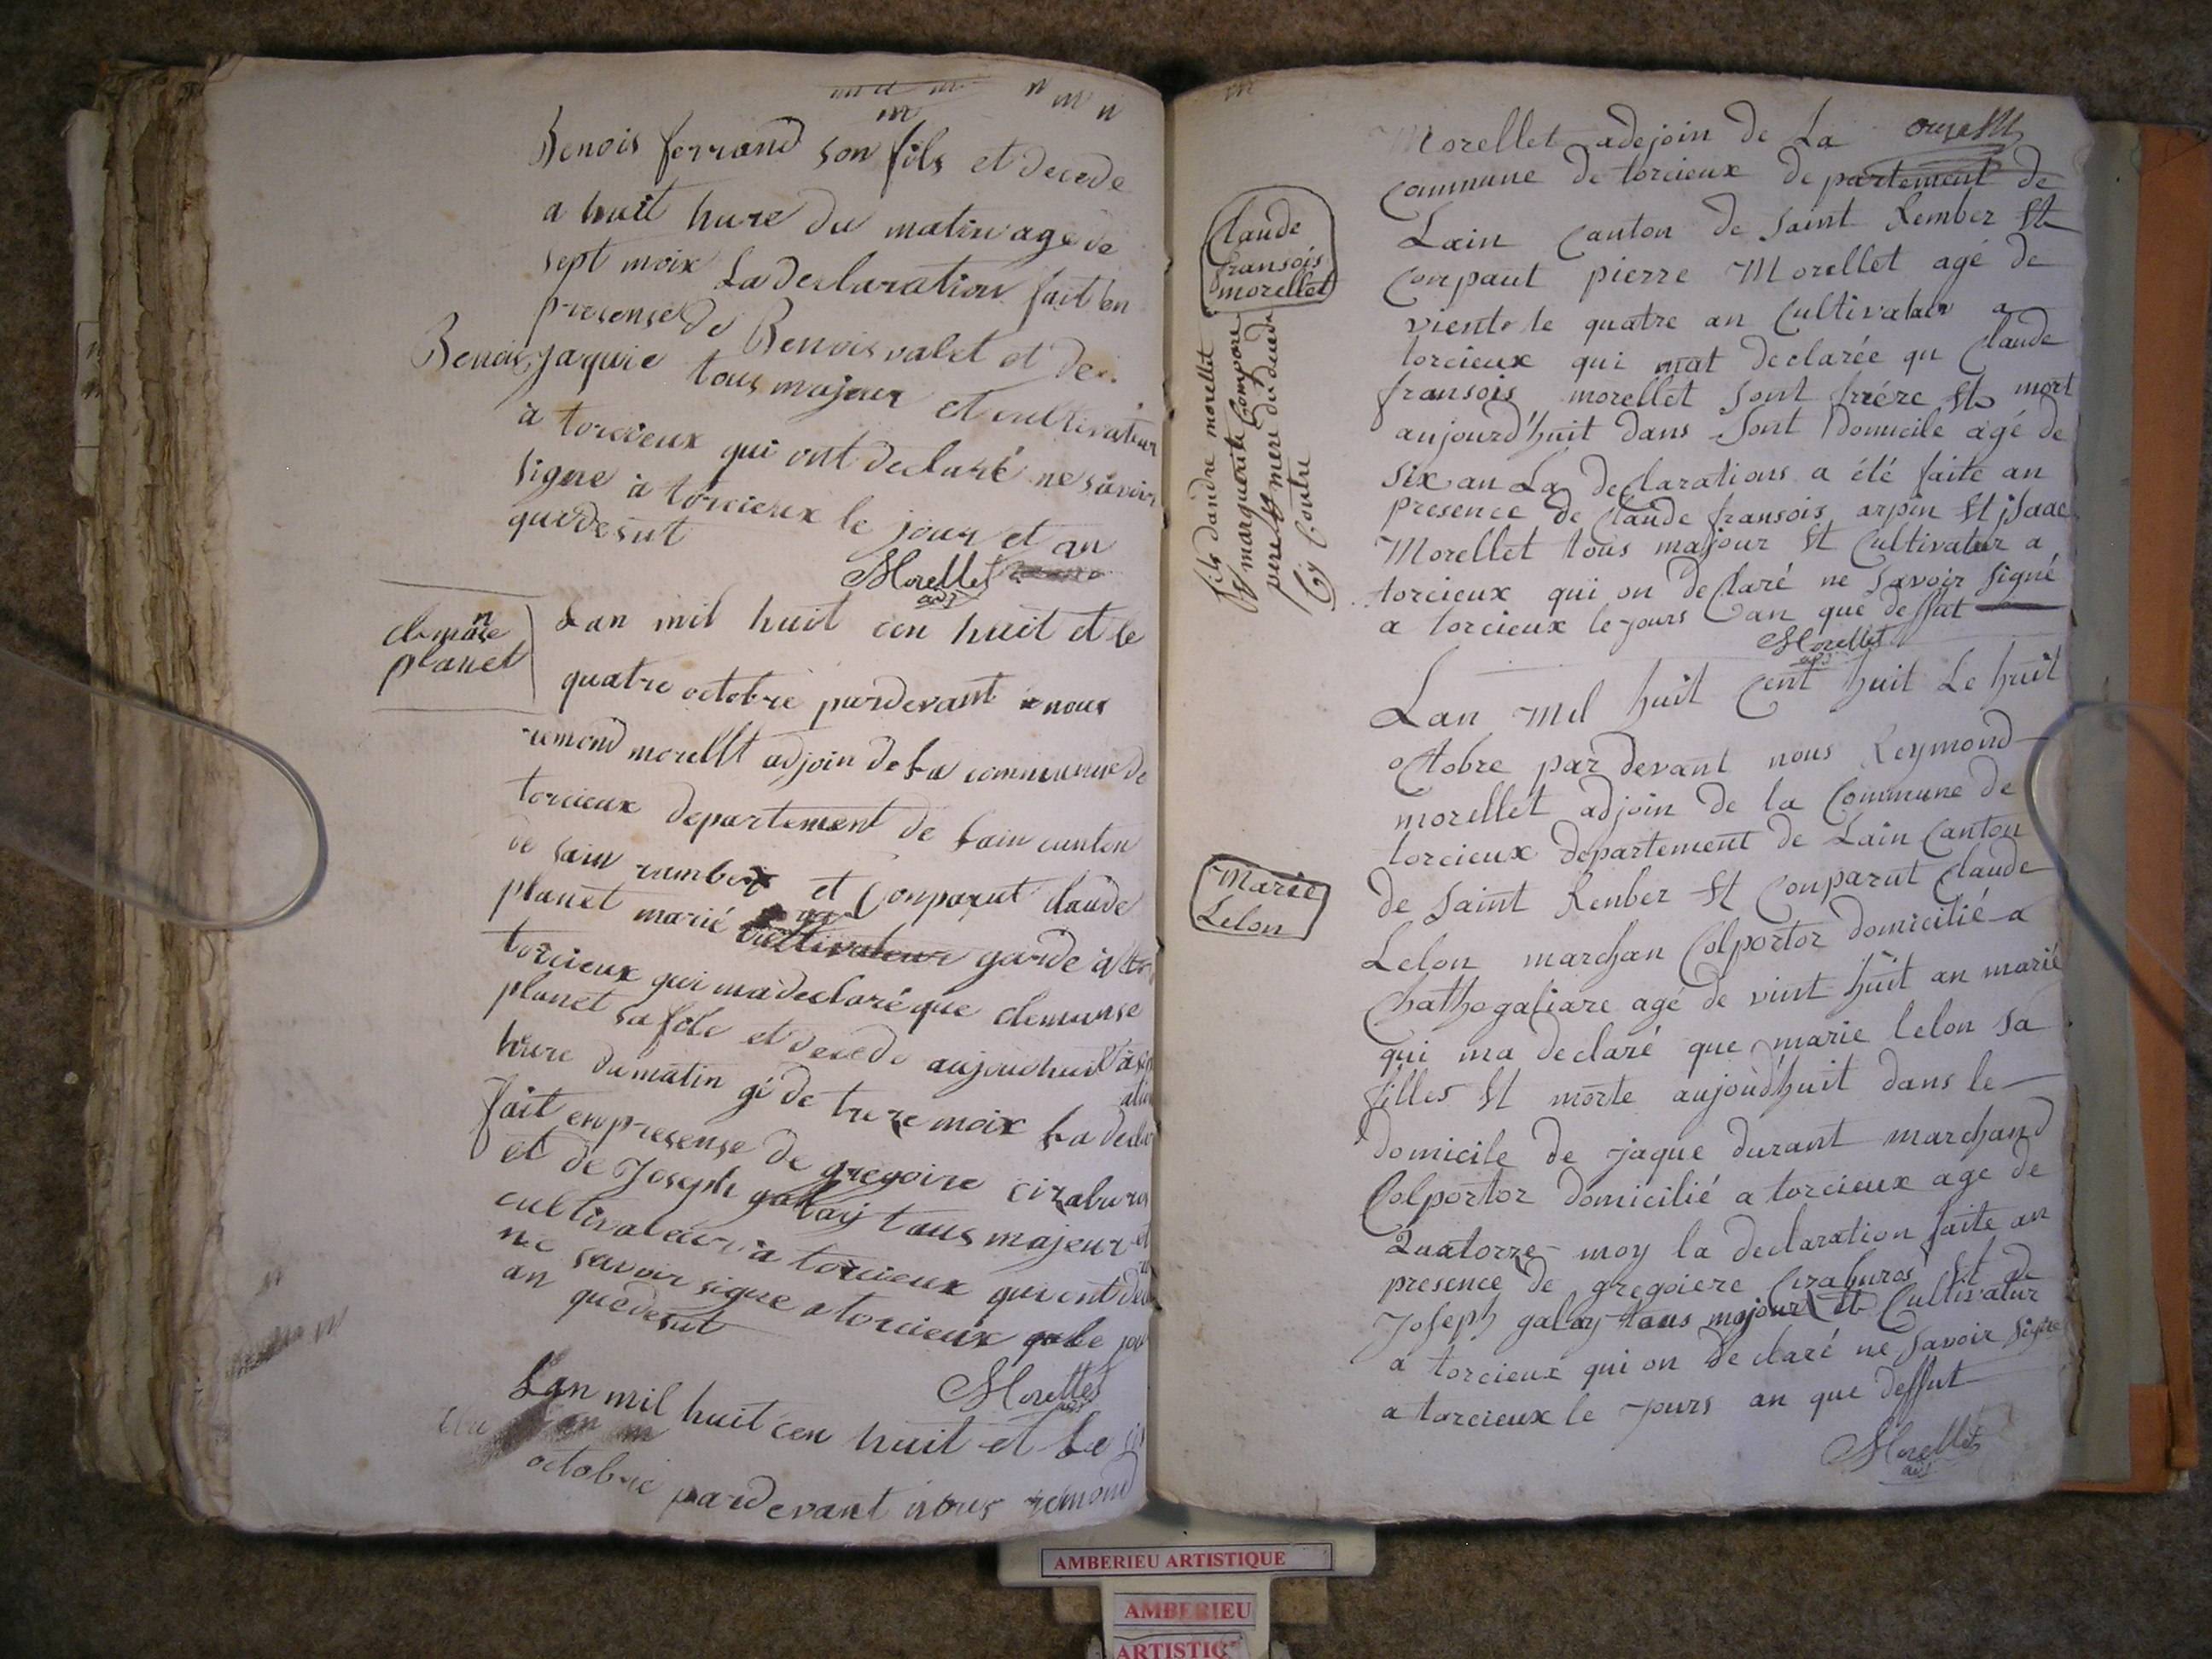 Benois ferrand son fils et decede
a huit hure du matin age de
sept moix La declaration fait en
presense de Benois valet et de
Benois jaquie tous majeur et cultivateur
à torcieux qui ont declaré ne savoir
signe à torcieux le jour et an
quedesut
Morellet
adj
clemanse
planet
Lan mil huit cen huit et le
quatre octobre pardevant nous
remond morellt adjoin de La commune de
torcieux departement de Lain canton
de sain rambert et Conparut claude
planet marié cultivateur garde à
torcieux qui ma declaré que clemanse
planet sa file et decede aujoudhuit à
hure du matin gé de treze moix La decla
fait en presense de gregoire cizaburos
et de Joseph galay tous majeur et
cultivateur à torcieux qui ont de
ne savoir signe a torcieux le jour
an quedesut
Morellet
adj
Lan mil huit cen huit et Le
octobre pardevant nous remond
Morellet adejoin de La
commune de torcieux departement de
Lain Canton de Saint Rember St
Conpaut pierre Morellet agé de
viente te quatre an Cultivatur a
torcieux qui mat declarée qu Claude
fransois morellet sont frére St mort
aujourd'huit dans Sont Domicile agé de
six an La declarations a été faite an
presence de Claude fransois arpin St jsaac
Morellet tous majour St Cultivatur a
torcieux qui on declaré ne savoir signé
a torcieux le jours an que deffut
Morellet
adj
Claude
fransois
morellet
fils dandre morellet
St marguerite
pere St mere du
Cy Contre
Lan mil huit Cent huit Le huit
octobre par devant nous Reymond
morellet adjoin de la Commune de
torcieux departement de Lain Canton
de Saint Renber St Conparut Claude
Lelon marchan Colportor domicilié a
Chathogaliare agé de vint huit an marié
qui ma declaré que marie lelon sa
filles St morte aujoud'huit dans le
domicile de jaque durant marchand
Colportor domicilié a torcieux age de
Quatorze moy la declaration faite an
presence de gregoiere Cizaburos St de
Joseph galay tous majour et Cultivatur
a torcieux qui on declaré ne savoir signe
a torcieux le jours an que deffut
Morellet
adj
Marie
Lelon
AMBERIEU ARTISTIQUE
AMBERIEU